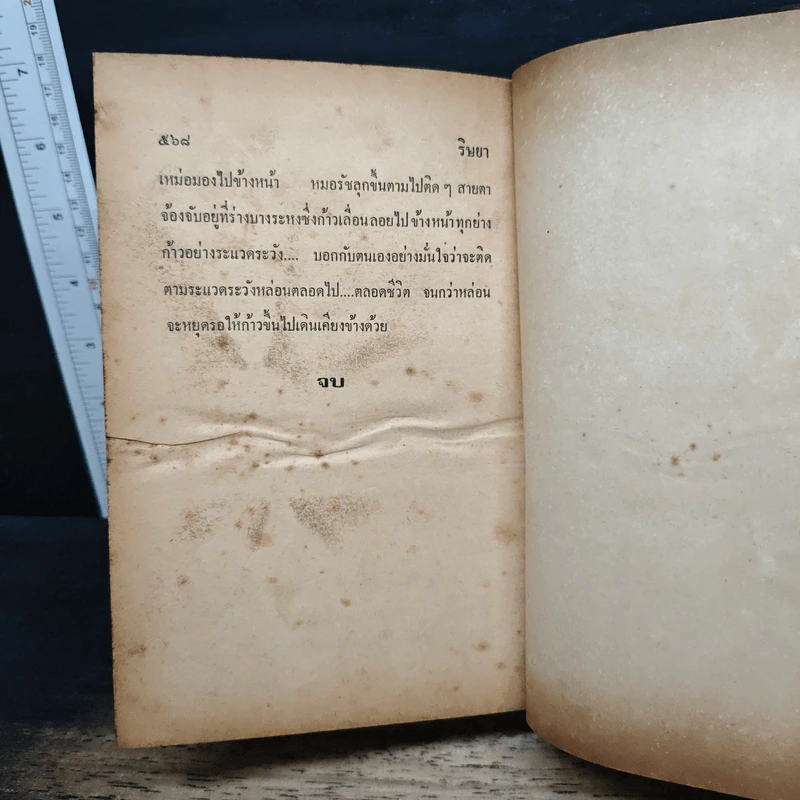 ๕๖๘
ริษยา
เหม่อมองไปข้างหน้า หมอรัชลุกขึ้นตามไปติด ๆ สายตา
จ้องจับอยู่ที่ร่างบางระหงซึ่งก้าวเลื่อนลอยไปข้างหน้าทุกย่าง
ก้าวอย่างระแวดระวัง.... บอกกับตนเองอย่างมั่นใจว่าจะติด
ตามระแวดระวังหล่อนตลอดไป....ตลอดชีวิต จนกว่าหล่อน
จะหยุดรอให้ก้าวขึ้นไปเดินเคียงข้างด้วย
จบ
7
6
5
4
3
20
19
18
17
16